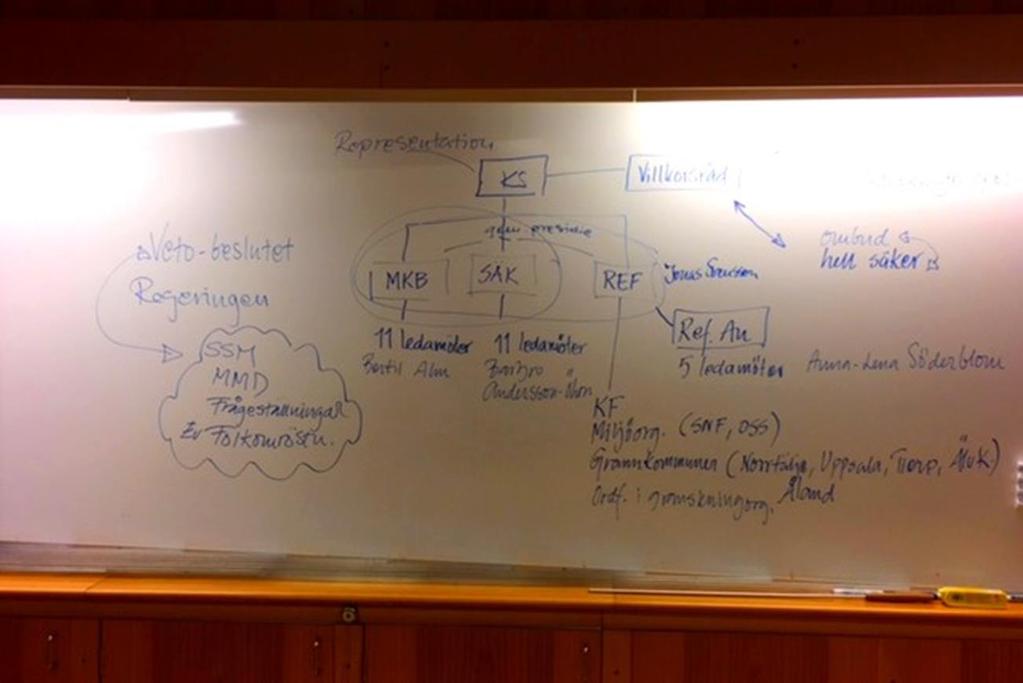 Representation
KS
Villkorsråd
Veto-beslutet
Regeringen
gem presidie
MKB
SÄK
REF
Jonas Svensson
ombud
helt säker
11 ledamöter
Bertil Alm
11 ledamöter
Barbro
Andersson-Öhrn
Ref. Au
5 ledamöter
Anna-Lena Söderblom
SSM
MMD
Frågeställningar
Ev Folkomröstn.
KF
Miljöorg. (SNF, OSS)
Grannkommuner (Norrtälje, Uppsala, Tierp, Älvk)
Ordf. i granskningorg. Åland